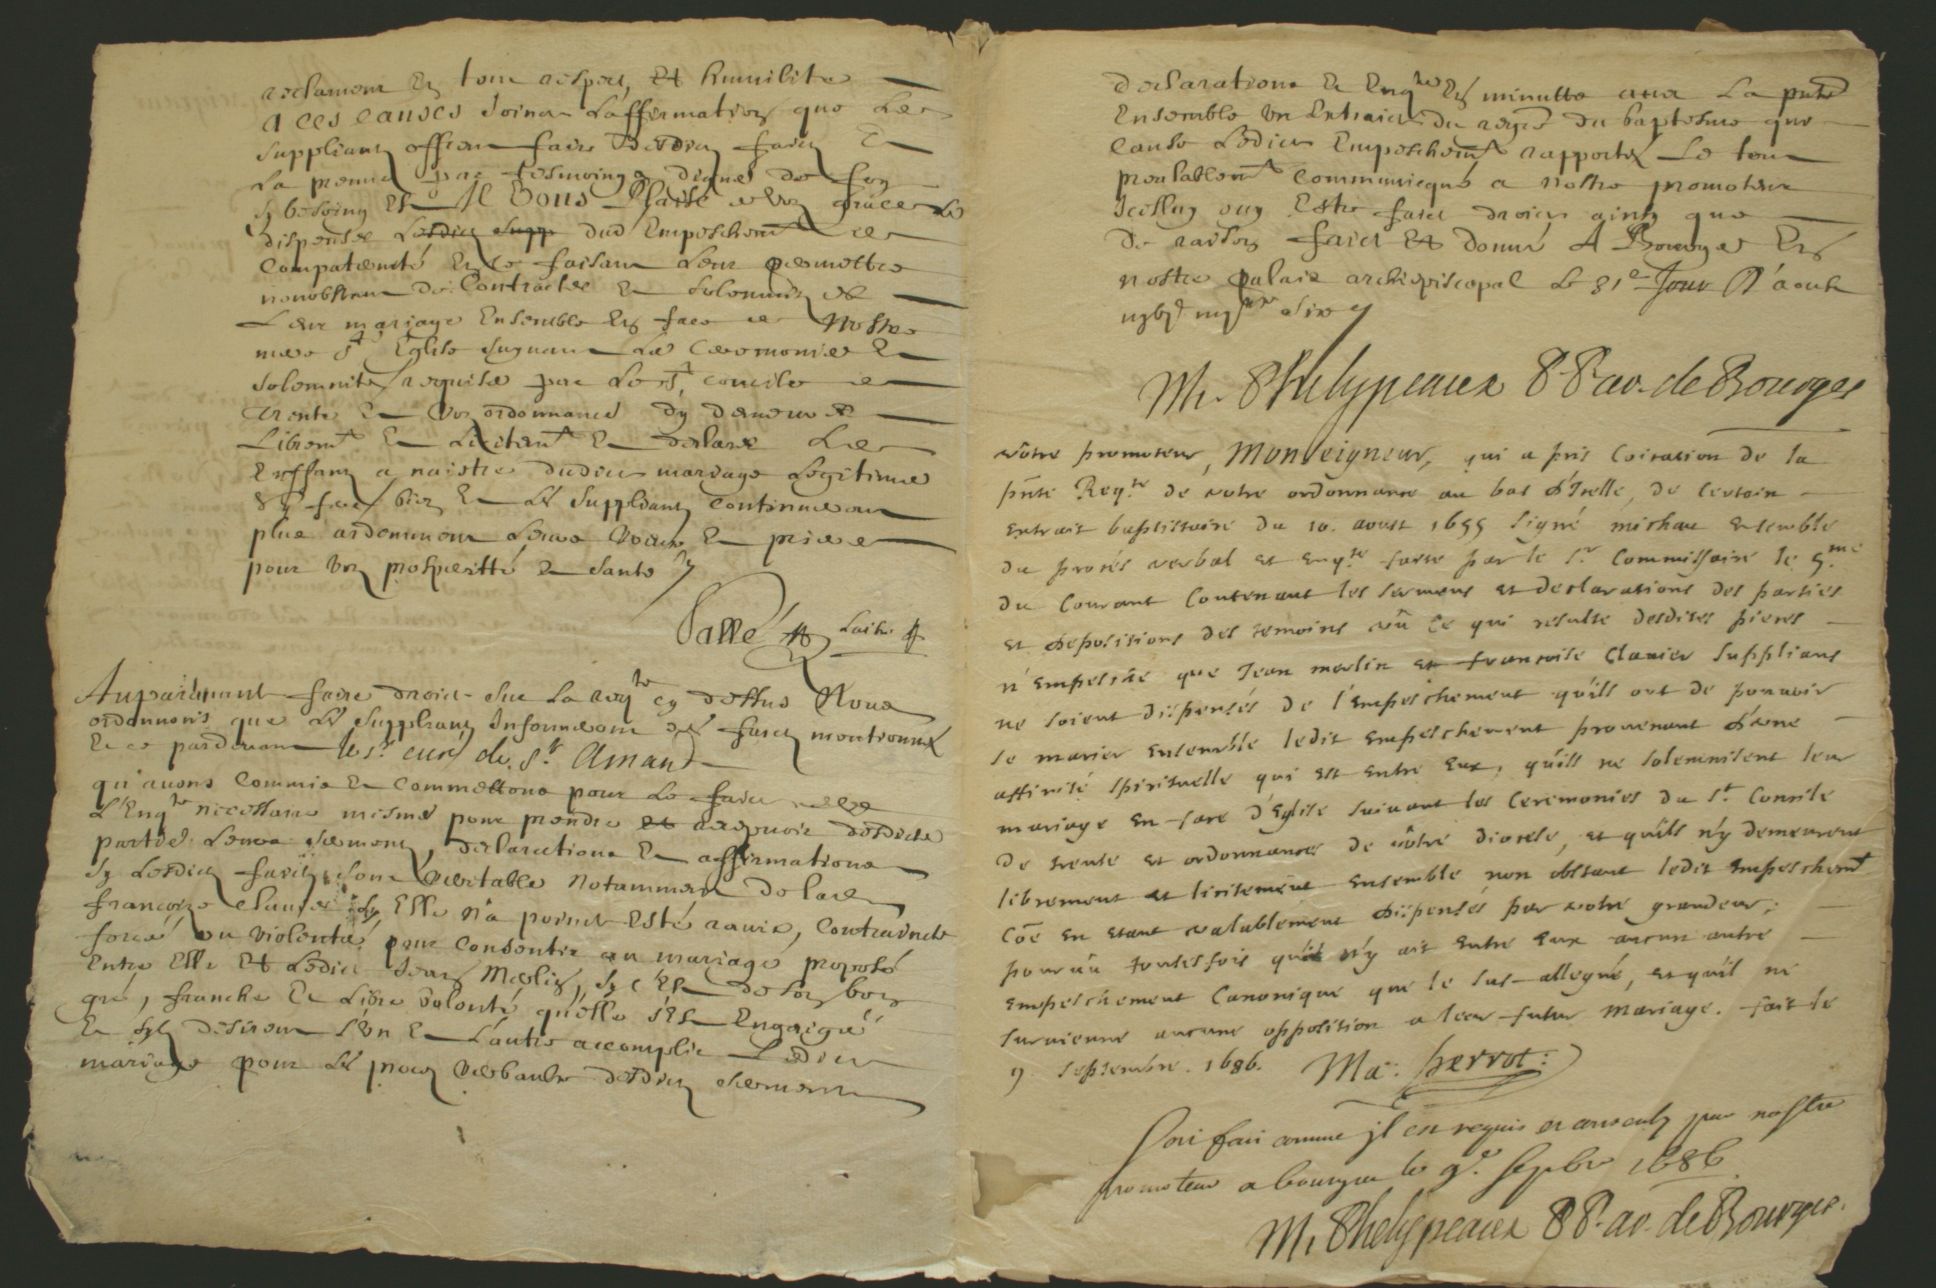 reclament en tout respect, et humilité
A ces causes joinct L'affirmation que Les
suppliants offrent faire desdits faicts Et
La preuve par tesmoings dignes de foy
sy besoing Est Il Vous Plaise de vos graces Les
dispenser Lesdits supp dud Empeschemt de
Compaternité Et ce faisant Leur permettre
nonobstant de Contracter Et solemniser
Leur mariage Ensemble En face de Nostre
mere Ste Eglise suyvant Les Ceremonies Et
solemnités requises par Le St concile de
trente Et vos ordonnances d'y demeurer
Librement Et Licitemt Et declarer Les
Enffants a naistre dudict mariage Legitimes
Et ferez bien Et Les Suppliants Continueront
plus ardemment Leurs Vœux Et prieres
pour Vos prosperitté Et Santé
Pallé
Auparavant faire droict sur La reqte cy dessus Nous
ordonnons que Les Supplians Informeront des faicts mentionnez
Et ce pardevant le sr curé de St Amand
qu'avons Commis Et Commettons pour Le faict
L'Enqte necessaire mesme pour prendre et recepvoir desdictes
parties Leurs serments, declarations Et affirmations
sy Lesdits faicts sont Veritables Notamment de lad
françoise Clavier sy Elle n'a point Esté ravie, Contraincte
forcé ou violenté pour Consentir au mariage proposé
Entre Elle Et Ledict Jean Merlin, sy c'Est de son bon
gré, franche Et Libre volonté qu'elle s'Est Engaigée
Et sy desirent L'un Et L'autre accomplir Ledict
mariage pour Les proces verbault desdits serments
declarations Et Enqte En minutte avec La pnte
Ensemble un Extraict du regre du baptesme que
cause Ledict Empeschemt rapportés Le tout
prealablemt Communicqué a nostre promoteur
Icelluy ouy Estre faict droict ainsy que
de raison faict Et donné A Bourges En
nostre palais archiepiscopal Le 31e Jour d'aoust
mil six
M. Phelypeaux P. P. ar. de Bourges
vôtre promoteur, Monseigneur, qui a pris Coiration de la
pnte Reqte de votre ordonnance au bas d'Icelle, de Certain
extrait baptistaire du 10. aoust 1655 signé michau ensemble
du procés verbal et enqte faite par le sr Commissaire le 5me
du Courant Contenant les sermens et declarations des parties
et depositions des temoins vû Ce qui resulte desdites pieces
n'Empesche que Jean merlin et francoise Clavier supplians
ne soient dispensés de l'Empeschement qu'ils ont de pouvoir
se marier ensemble ledit empeschement provenant d'une
affinité spirituelle qui est entre eux, qu'ils ne solemnisent leur
mariage en face d'Eglise suivant les Ceremonies du St Concile
de trente et ordonnances de vôtre diocese, et qu'ils n'y demeurent
librement et licitement ensemble non obstant ledit empeschemt
Cõe en etant valablement dispensés par votre grandeur;
pourvû toutesfois qu'il n'y ait entre eux aucun autre
empeschement Canonique que le sus-allegué, et qu'il ni
survienne aucune opposition a leur futur Mariage. fait le
9 septembre. 1686. Ma: perrot:
soit fait comme jl est requis et consenty par nostre
promoteur a bourges le 9e. septbre 1686
M. Phelypeaux P. P. ar. de Bourges.